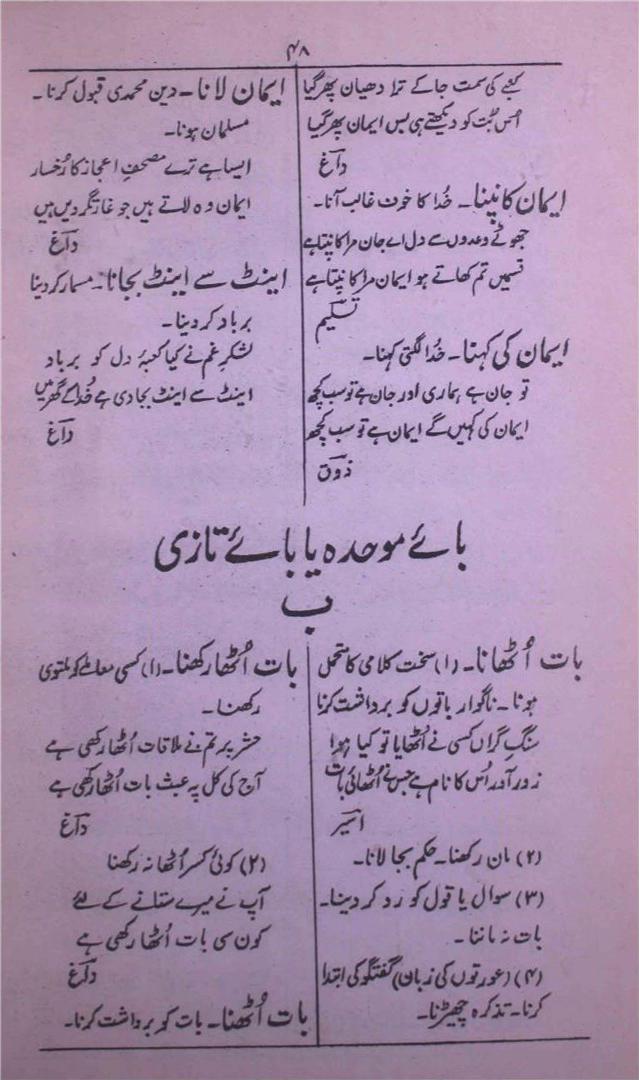 ۴۸
کعبے کی سمت جا کے ترا دھیان پھر گیا
اُس بُت کو دیکھتے ہی بس ایمان پھر گیا
داغ
ایمان کانپنا۔ خُدا کا خوف غالب آنا۔
جھوٹے وعدوں سے دل اے جان مرا کانپتا ہے
قسمیں تم کھاتے ہو ایمان مرا کانپتا ہے
تسلیم
ایمان کی کہنا۔ خُدا لگتی کہنا۔
تو جان ہے ہماری اور جان ہے تو سب کچھ
ایمان کی کہیں گے ایمان ہے تو سب کچھ
ذوق
ایمان لانا۔ دین محمدی قبول کرنا۔
مسلمان ہونا۔
ایسا ہے ترے مصحف اعجاز کا رُخسار
ایمان وہ لاتے ہیں جو غارتگر دیں ہیں
داغ
اینٹ سے اینٹ بجانا۔ مسمار کر دینا
برباد کر دینا۔
لشکرِ غم نے کیا کعبۂ دل کو برباد
اینٹ سے اینٹ بجا دی ہے خُدا کے گھر میں
داغ
بائے موحدہ یا بائے تازی
ب
بات اُٹھانا۔ (۱) سخت کلامی کا متحمل
ہونا۔ ناگوار باتوں کو برداشت کرنا
سنگِ گراں کسی نے اُٹھایا تو کیا ہوا
زور آور اُس کا نام ہے جس نے اُٹھائی بات
اسیر
(۲) مان رکھنا۔ حکم بجا لانا۔
(۳) سوال یا قول کو رد کر دینا۔
بات نہ ماننا۔
(۴) (عورتوں کی زبان) گفتگو کی ابتدا
کرنا۔ تذکرہ چھیڑنا۔
بات اُٹھا رکھنا۔ (۱) کسی معاملے کو ملتوی
رکھنا۔
حشر پر تم نے ملاقات اُٹھا رکھی ہے
آج کی کل پہ عبث بات اُٹھا رکھی ہے
داغ
(۲) کوئی کسر اُٹھا نہ رکھنا
آپ نے میرے ستانے کے لئے
کون سی بات اُٹھا رکھی ہے
داغ
بات اُٹھنا۔ بات کو برداشت کرنا۔